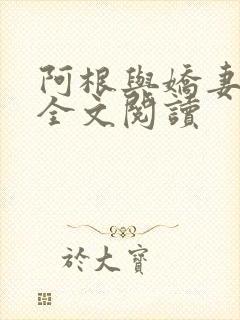 阿根與嬌妻
全文閱讀
於大寶